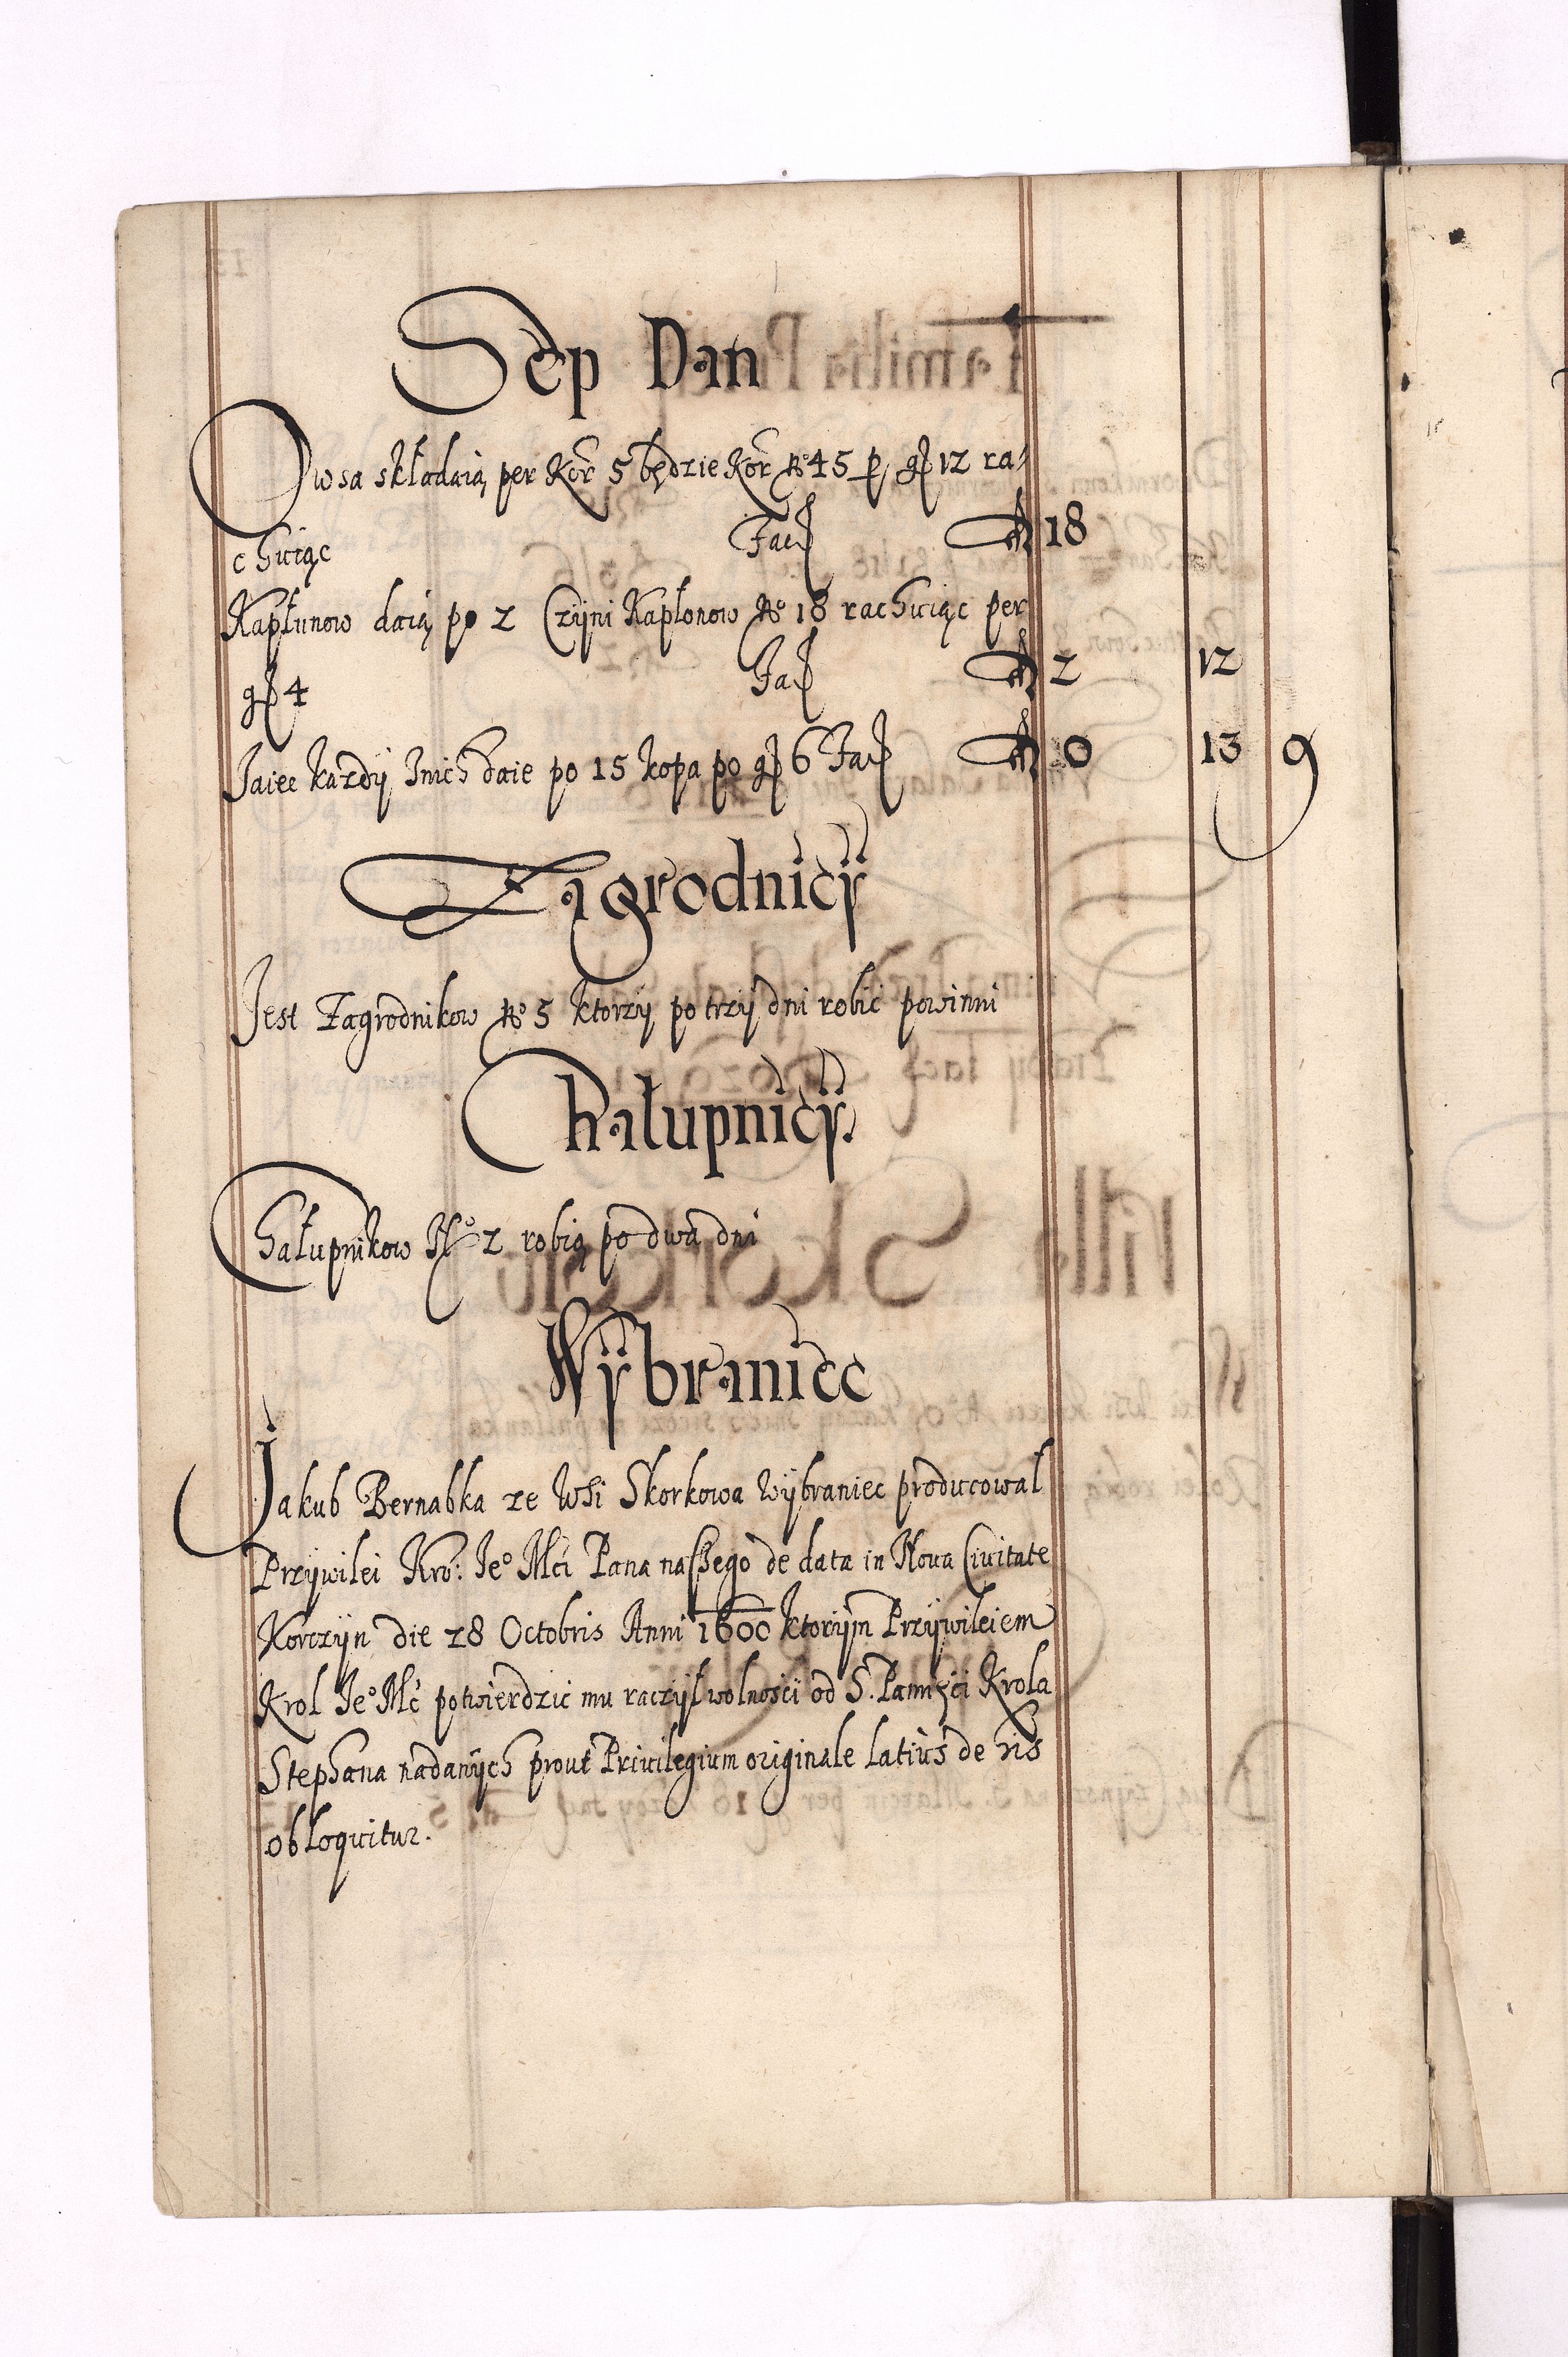 Sep Dan
Owsa składaią per Kor 5 będzie Kor No 45 per gr 12 ra-
chuiąc Fac fl 18
Kapłunow daią po 2 Czyni Kapłonow No 18 rachuiąc per
gr 4 Fac fl 2 12
Jaiec kazdÿ Znich daie po 15 kopa po gr 6 Fac fl 0 13 9
Zagrodnicÿ
Jest Zagrodnikow No 5 ktorzÿ po trzÿ dni robić powinni
Chałupnicÿ.
Chałupnikow No 2 robią po dwa dni
Wÿbraniec
Jakub Bernabka ze Wsi Skorkowa Wÿbraniec producował
Przÿwilei Kro: Jeo Mći Pana naszego de data in Noua Ciuitate
Korczÿn die 28 Octobris Anni 1600 ktorÿm Przÿwileiem
Krol Jeo Mć potwierdzic mu raczÿł wolnosci od S. Pamięci Krola
Stephana nadanÿch prout Priuilegium originale latius de his
obloquitur.